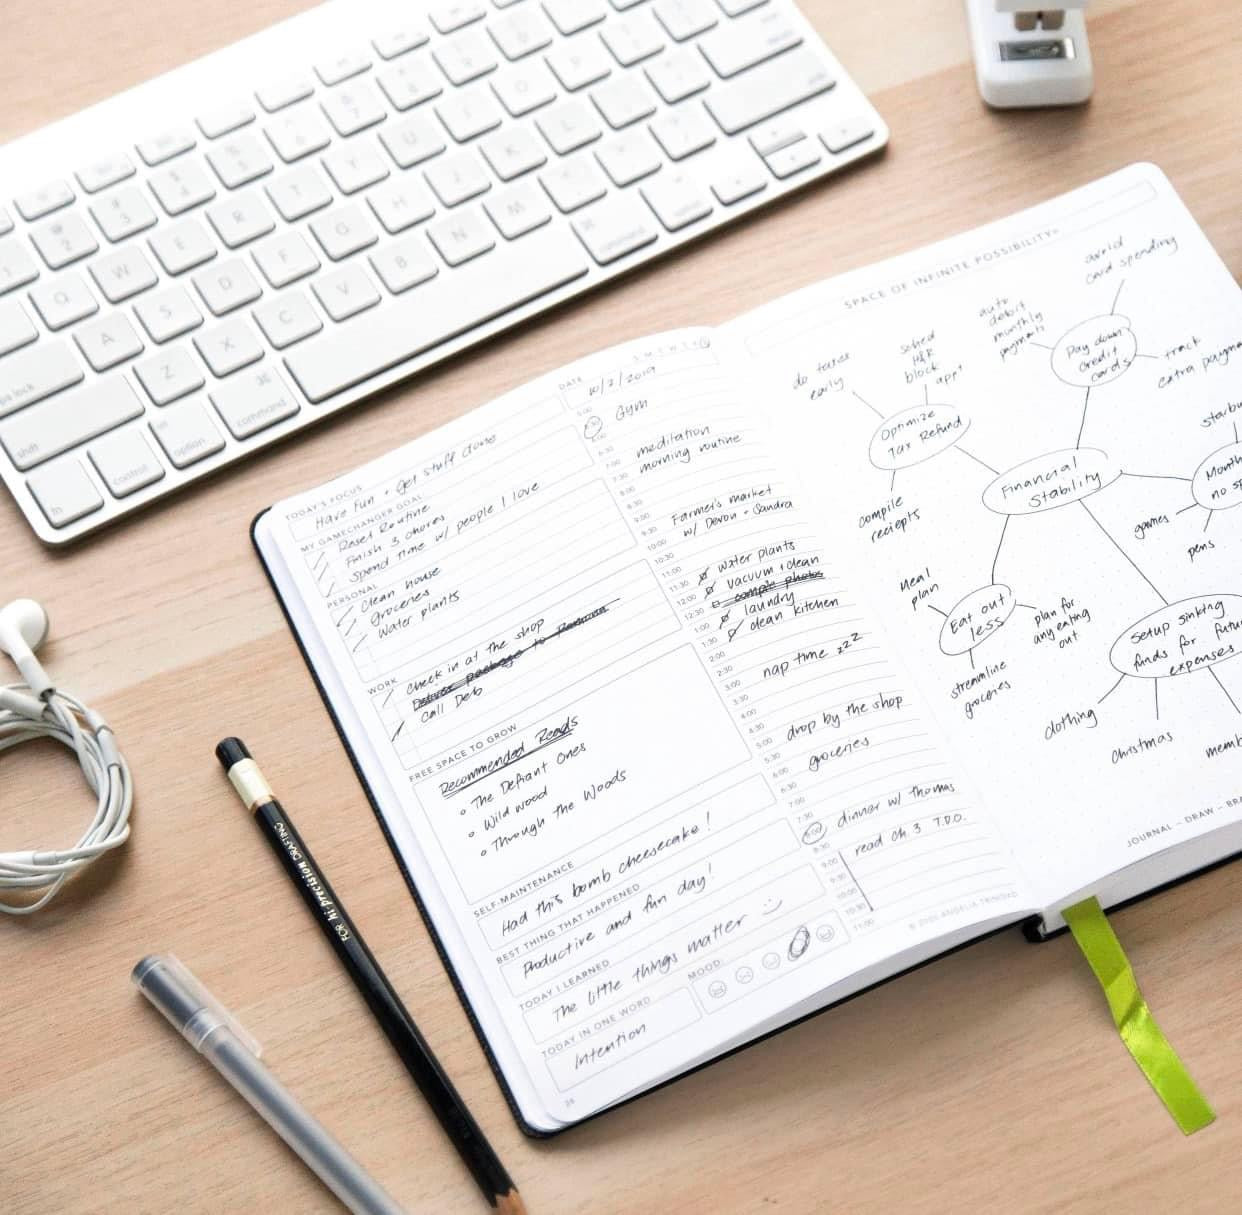 TODAY'S FOCUS
Have fun + get stuff done
MY GAMECHANGER GOAL
Reset Routine
Finish 3 chores
Spend time w/ people I love
PERSONAL
Clean house
groceries
Water plants
WORK
Check in at the shop
Call Deb
FREE SPACE TO GROW
Recommended Reads
The Defiant Ones
Wildwood
Through the Woods
SELF-MAINTENANCE
Had this bomb cheesecake!
BEST THING THAT HAPPENED
Productive and fun day!
TODAY I LEARNED
The little things matter
TODAY IN ONE WORD
Intention
MOOD:
DATE
S M T W T F
10/2/2019
Gym
meditation
morning routine
Farmer's market
w/ Devon + Sandra
water plants
vacuum + clean
laundry
clean kitchen
nap time zzz
drop by the shop
groceries
dinner w/ thomas
read Ch. 3 T.D.O.
6:30
7:00
7:30
8:00
8:30
9:00
9:30
10:00
10:30
11:00
11:30
12:00
12:30
1:00
1:30
2:00
2:30
3:00
3:30
4:00
4:30
5:00
5:30
6:00
7:00
7:30
8:00
8:30
9:00
9:30
10:00
10:30
11:00
SPACE OF INFINITE POSSIBILITY
Financial
Stability
Optimize
Tax Refund
do taxes
early
sched
H&R
block
app't
compile
reciepts
Pay down
credit
cards
auto
debit
monthly
payments
avoid
card spending
track
extra
games
pens
Eat out
less
Meal
plan
plan for
any eating
out
streamline
groceries
Setup sinking
funds for
expenses
clothing
Christmas
JOURNAL – DRAW –
2
3
4
5
6
7
Q
W
E
R
T
Y
U
A
S
D
F
G
H
J
K
L
Z
X
C
V
B
N
M
shift
fn
control
option
command
command
FOR hi precision DRAFTING